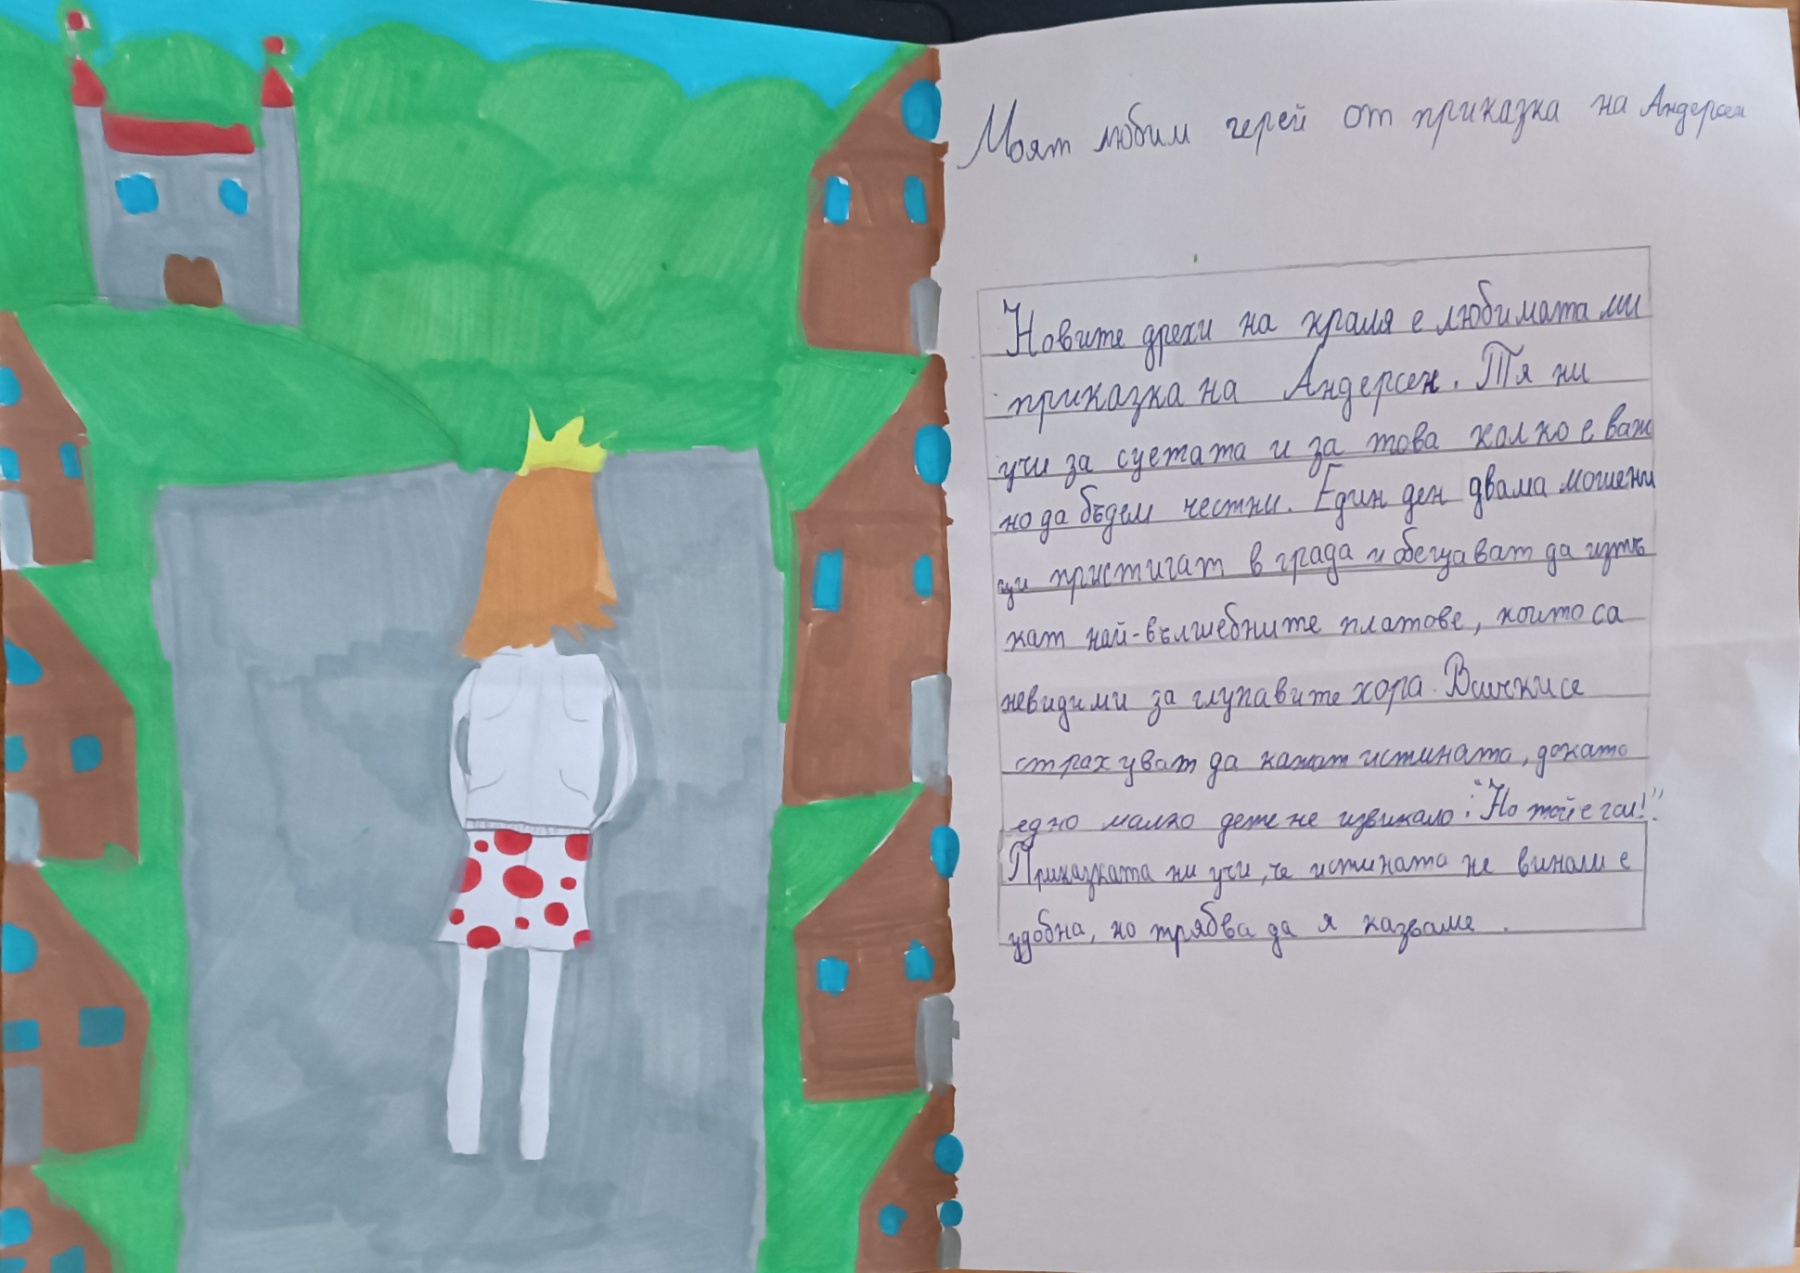 Моят любим герой от приказка на Андерсен
Новите дрехи на краля е любимата ми
приказка на Андерсен. Тя ни
учи за суетата и за това колко е важ
но да бъдем честни. Един ден двама мошени
ци пристигат в града и обещават да изтъ
кат най-вълшебните платове, които са
невидими за глупавите хора. Всички се
страхуват да кажат истината, докато
едно малко дете не извикало: "Но той е гол!".
Приказката ни учи, че истината не винаги е
удобна, но трябва да я казваме.